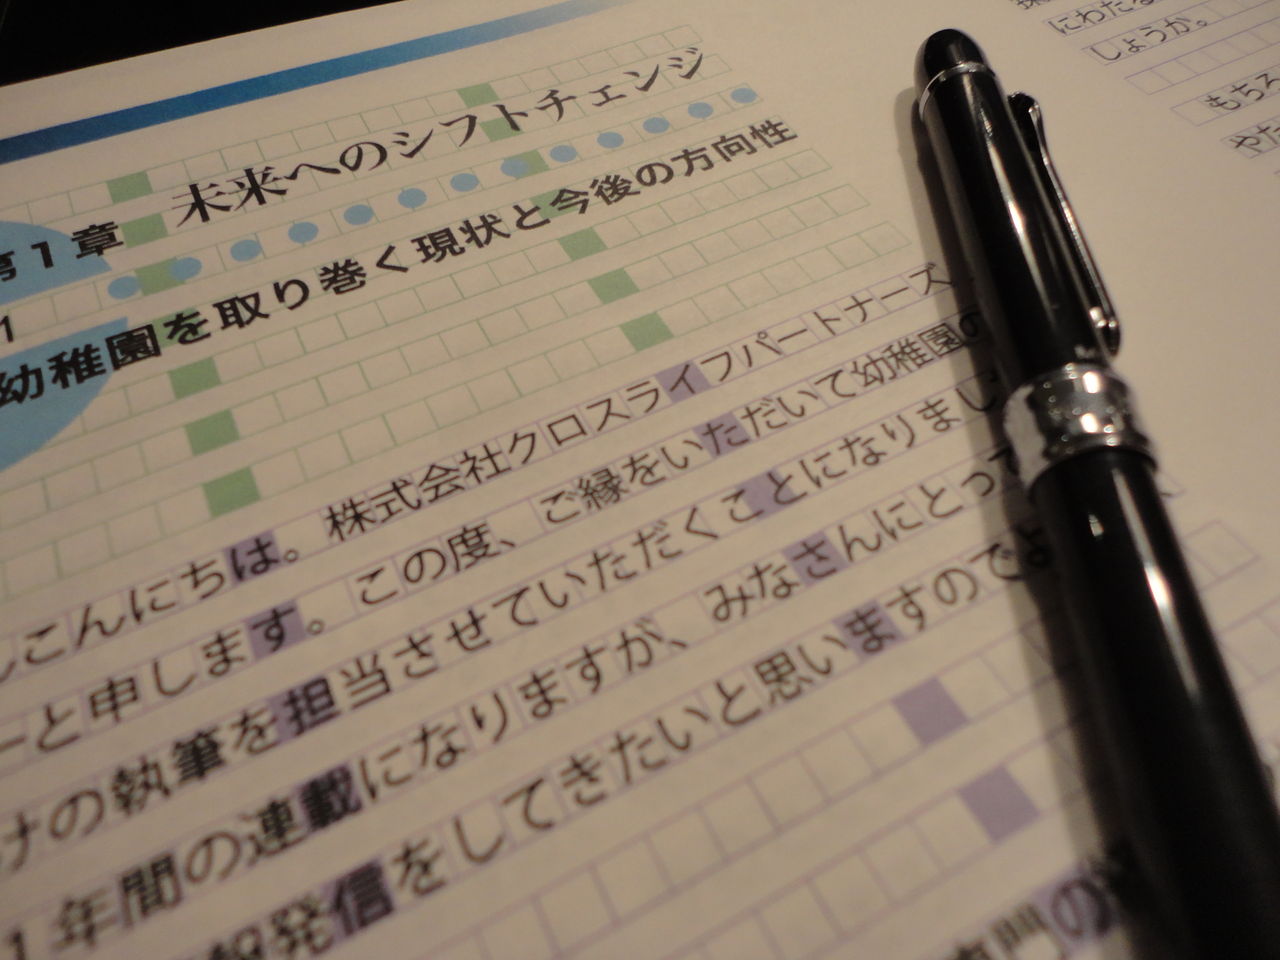 第1章 未来へのシフトチェンジ
1
幼稚園を取り巻く現状と今後の方向性
こんにちは。株式会社クロスライフパートナーズ
ーと申します。この度、ご縁をいただいて幼稚園の
けの執筆を担当させていただくことになりまし
1年間の連載になりますが、みなさんにとって
報発信をしてきたいと思いますのでよ
門の
にわたる
しょうか。
もちろ
やた